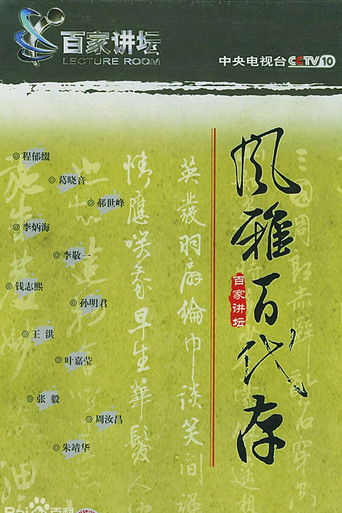 百家讲坛
LECTURE ROOM
中央电视台 CCTV10
风雅百代存
百家讲坛
程郁缀
葛晓音
郝世峰
李炳海
李敬一
钱志熙
孙明君
王洪
叶嘉莹
张毅
周汝昌
朱靖华
英發羽扇綸巾談笑間
情應咲我早生華髮人
Bai 百科